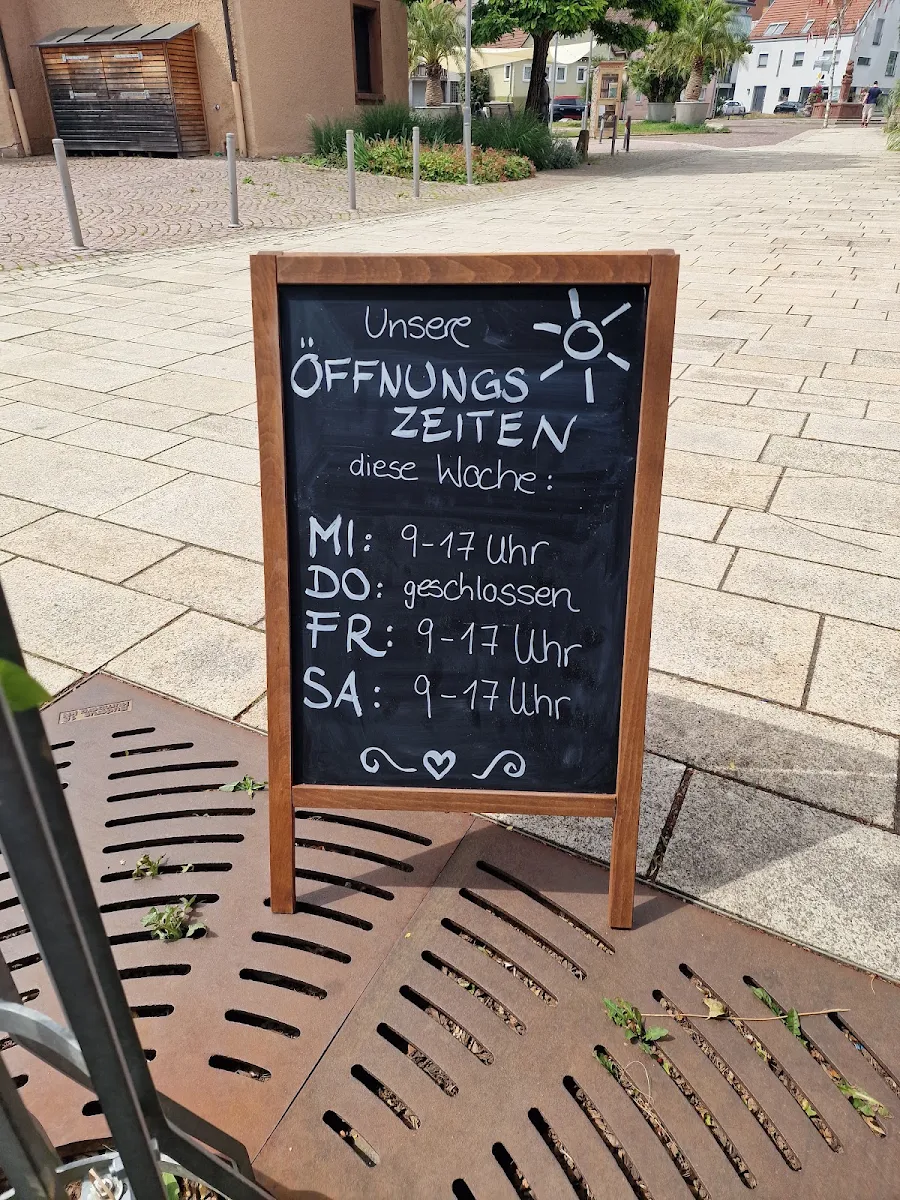 Unsere
ÖFFNUNGS
ZEITEN
diese Woche:
MI: 9-17 Uhr
DO: geschlossen
FR: 9-17 Uhr
SA: 9-17 Uhr